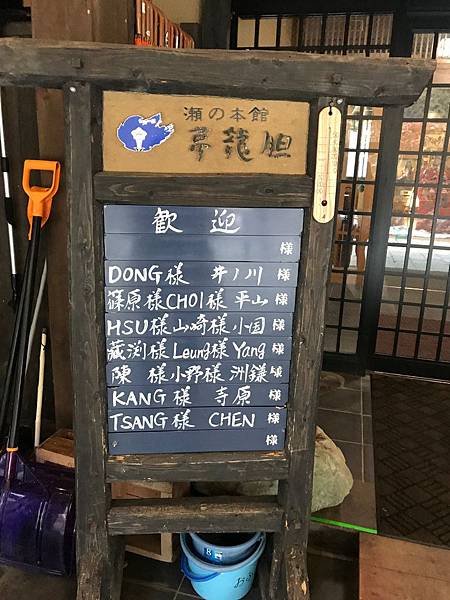 瀬の本館
夢龍胆
歓迎
様
DONG様 井ノ川様
篠原様CHOI様平山様
HSU様山崎様小国様
蔵渕様Leung様Yang様
陳様小野様洲鎌様
KANG様 寺原様
TSANG様 CHEN様
様